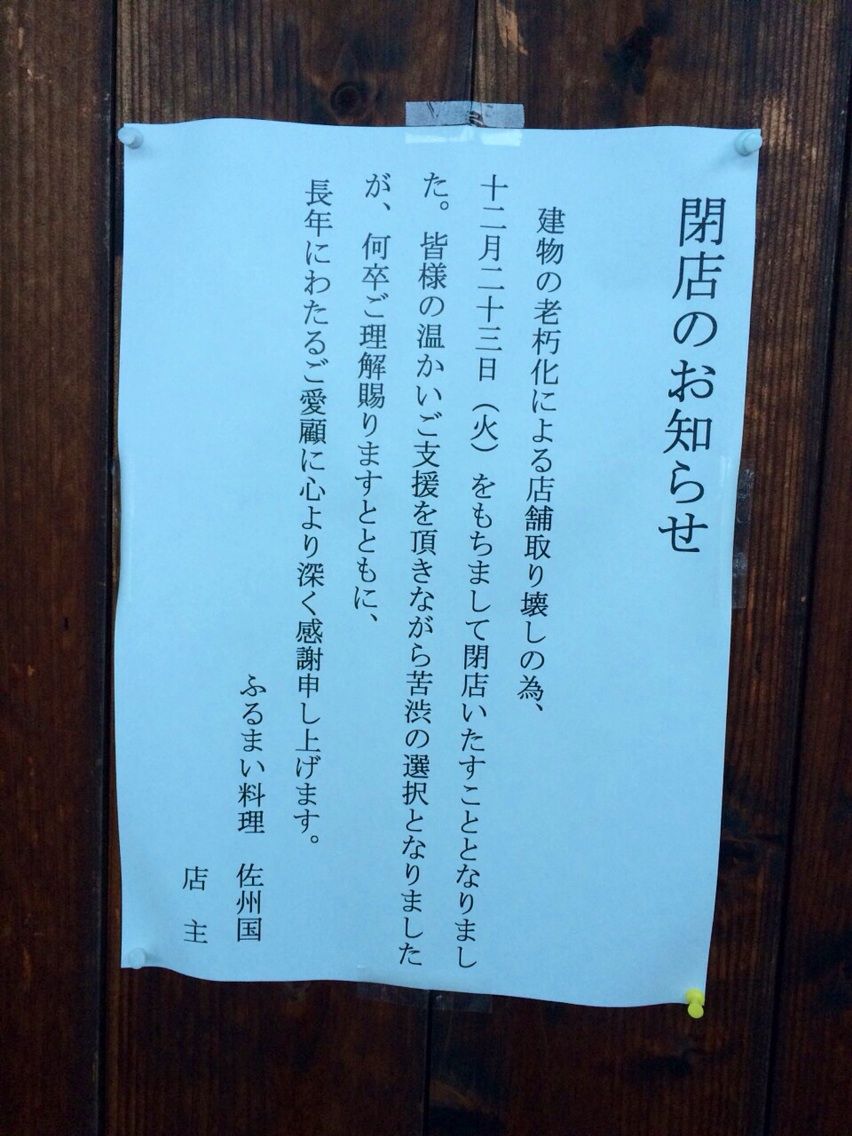 閉店のお知らせ
建物の老朽化による店舗取り壊しの為、
十二月二十三日（火）をもちまして閉店いたすこととなりまし
た。皆様の温かいご支援を頂きながら苦渋の選択となりました
が、何卒ご理解賜りますとともに、
長年にわたるご愛顧に心より深く感謝申し上げます。
ふるまい料理　佐州国
店　主